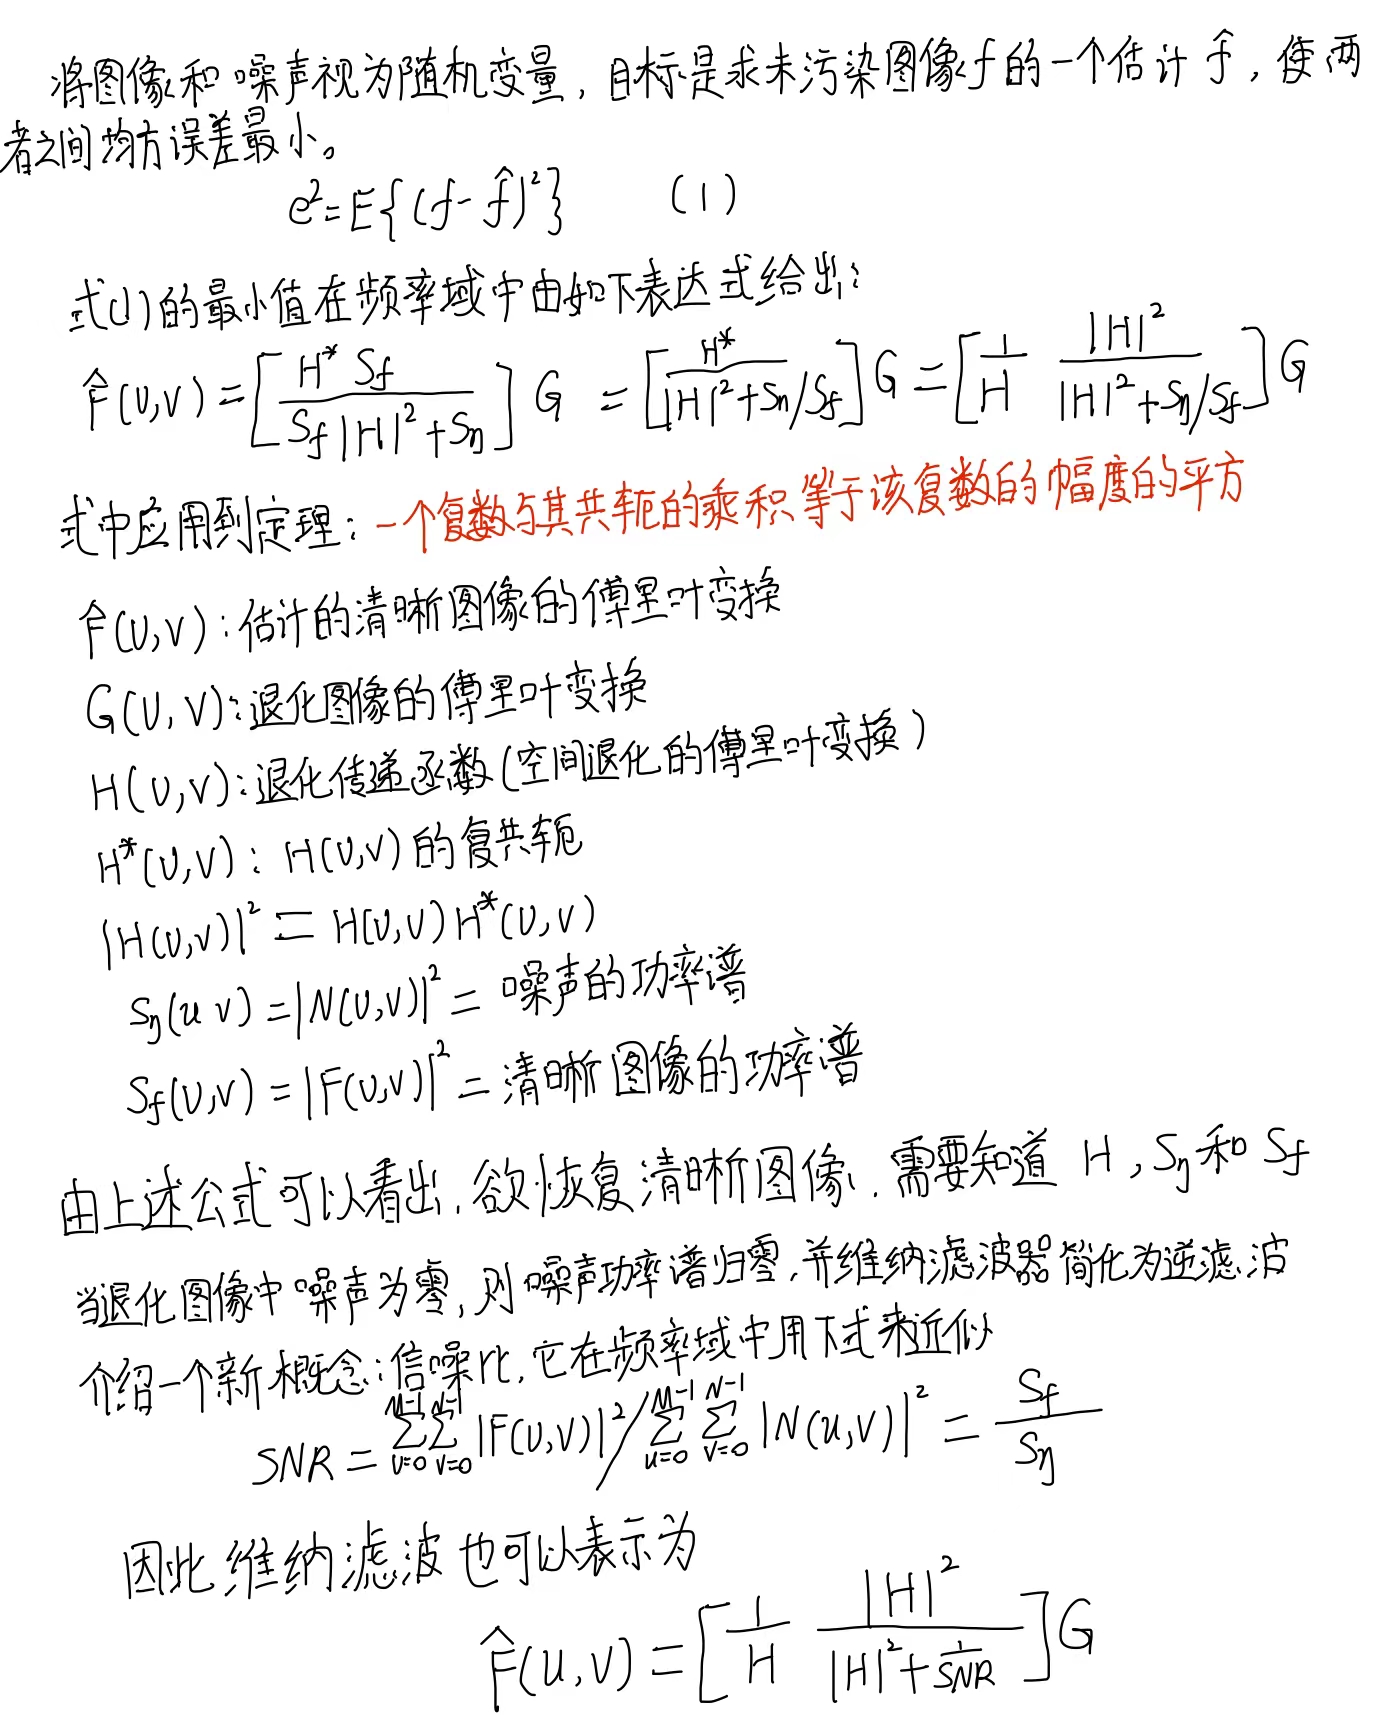 将图像和噪声视为随机变量，目标是求未污染图像f的一个估计f̂，使两
者之间均方误差最小。
e²=E{(f-f̂)²}  (1)
式(1)的最小值在频率域中由如下表达式给出：
F̂(u,v)=[H* Sf / (Sf|H|²+Sη)] G = [H* / (|H|²+Sη/Sf)] G = [1/H |H|² / (|H|²+Sη/Sf)] G
式中应用到定理：一个复数与其共轭的乘积等于该复数的幅度的平方
F̂(u,v)：估计的清晰图像的傅里叶变换
G(u,v)：退化图像的傅里叶变换
H(u,v)：退化传递函数(空间退化的傅里叶变换)
H*(u,v)：H(u,v)的复共轭
|H(u,v)|²=H(u,v)H*(u,v)
Sη(u v)=|N(u,v)|²=噪声的功率谱
Sf(u,v)=|F(u,v)|²=清晰图像的功率谱
由上述公式可以看出，欲恢复清晰图像，需要知道 H，Sη和Sf
当退化图像中噪声为零，则噪声功率谱归零，并维纳滤波器简化为逆滤波
介绍一个新概念：信噪比，它在频率域中用下式来近似
SNR=∑_{u=0}^{M-1}∑_{v=0}^{N-1}|F(u,v)|²/∑_{u=0}^{M-1}∑_{v=0}^{N-1}|N(u,v)|²=Sf/Sη
因此维纳滤波也可以表示为
F̂(u,v)=[1/H |H|² / (|H|²+1/SNR)]G